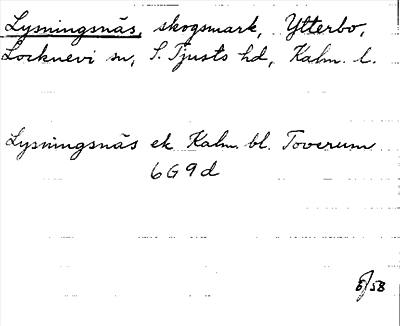 Lysningsnäs, skogsmark, Ytterbo,
Locknevi sn, S. Tjusts hd, Kalm. l.
Lysningsnäs ek Kalm. bl. Toverum
6G9d
6/58